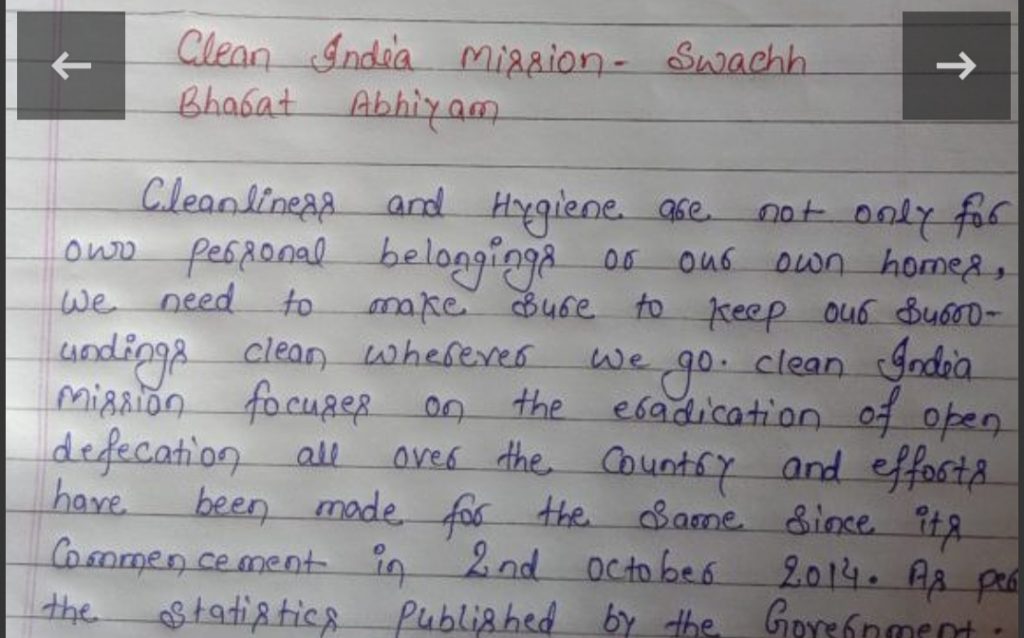 Clean India Mission- Swachh
Bharat Abhiyam
Cleanliness and Hygiene are not only for
own personal belongings or our own homes,
we need to make sure to keep our surro-
undings clean wherever we go. clean India
Mission focuses on the eradication of open
defecation all over the Country and efforts
have been made for the same since its
Commencement in 2nd october 2014. As per
the statistics Published by the Government.